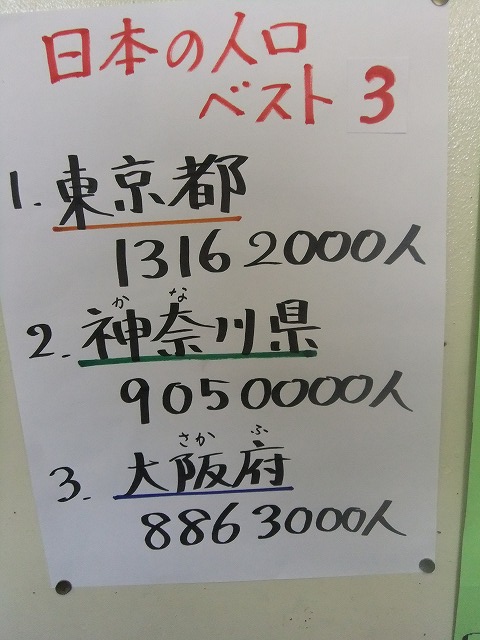 日本の人口
ベスト3
1.東京都
13162000人
かな
2.神奈川県
9050000人
さかふ
3.大阪府
8863000人